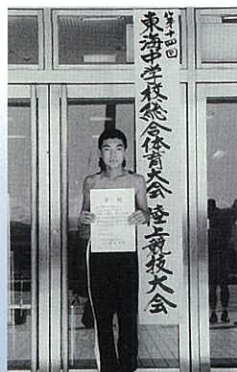 第十四回
東海中学校総合体育大会 陸上競技大会
賞状